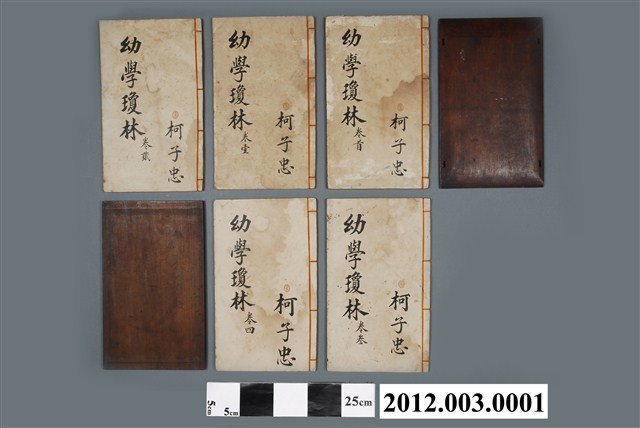 幼學瓊林
卷貳
柯子忠
幼學瓊林
卷壹
柯子忠
幼學瓊林
卷首
柯子忠
幼學瓊林
卷四
柯子忠
幼學瓊林
卷叁
柯子忠
5cm
25cm
2012.003.0001